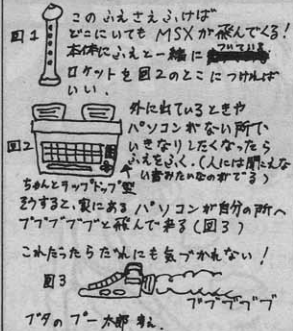 このふえさえふけば
どこにいても MSXが飛んでくる!
図1
本体にふえと一緒に
ロケットを図2のとこにつければ
いい.
外に出ているときや
パソコンがない所で
いきなりしたくなったら
図2
ふえをふく.(人には聞こえな
い音みたいなのがでる)
ちゃんとラップトップ型
そうすると,家にあるパソコンが自分の所へ
ブブブブブと飛んで来る(図3)
これだったらだれにも気づかれない!
図3
ブブブブブ
ブタのプー太郎 考え.